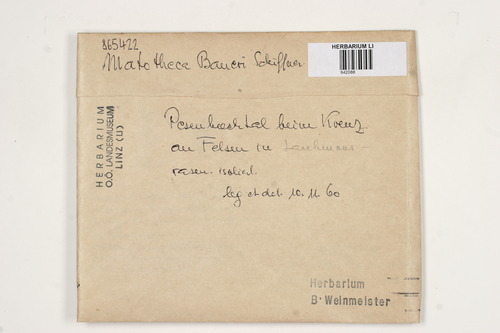 865422
Matotheca Baueri Schiffner
HERBARIUM LI
842088
HERBARIUM
O.Ö. LANDESMUSEUM
LINZ (U)
Rosenbachtal beim Kreuz
an Felsen in
rasen. isoliert.
leg et det. 10. 11. 60
Herbarium
B. Weinmeister